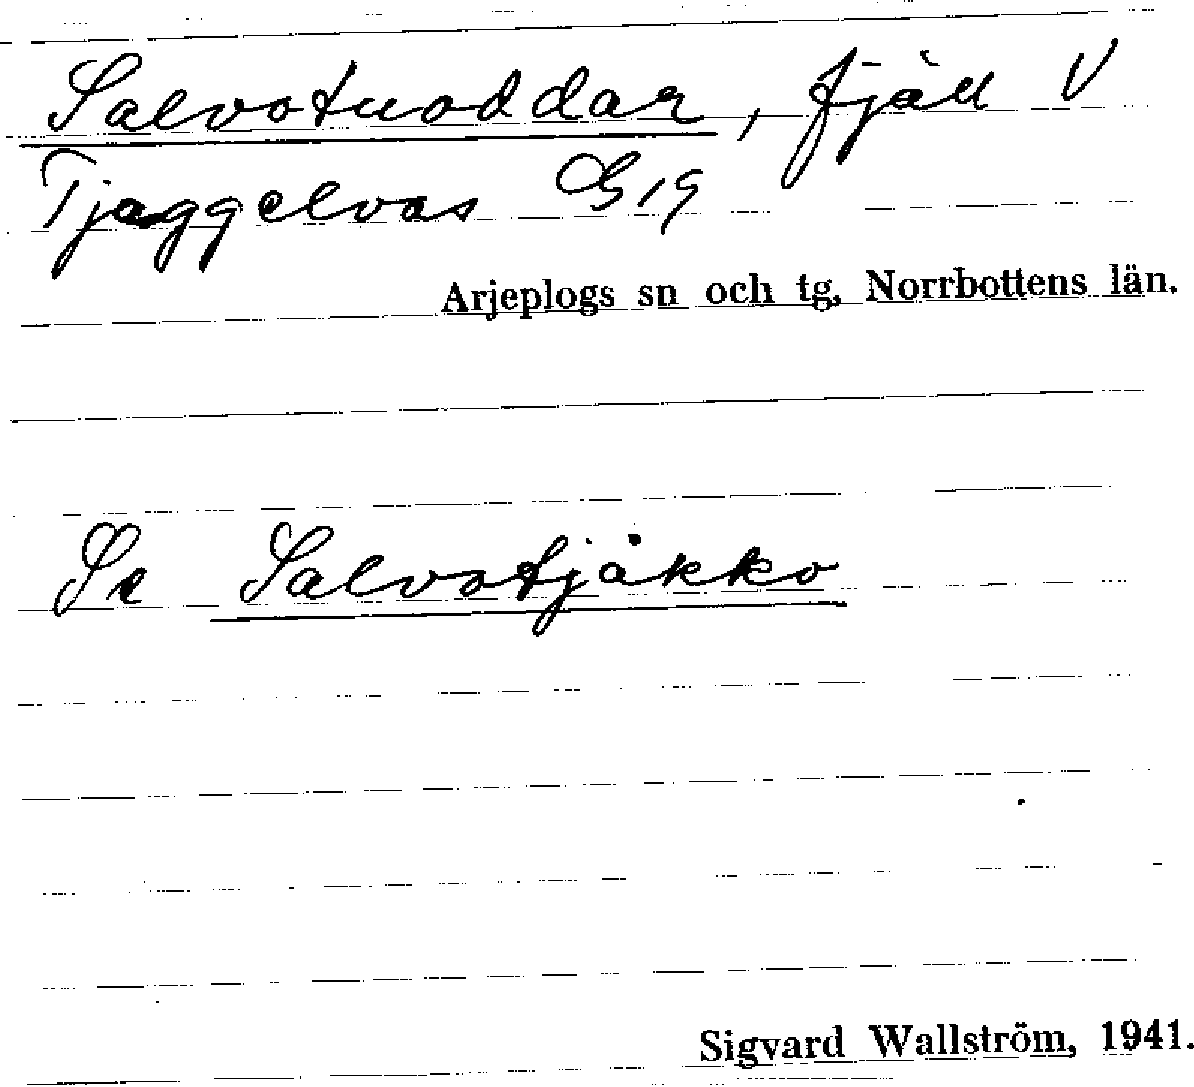 Salvotuoddar, fjäll V
Tjeggelvas G 19
Arjeplogs sn och tg, Norrbottens län.
Se Salvotjåkko
Sigvard Wallström, 1941.